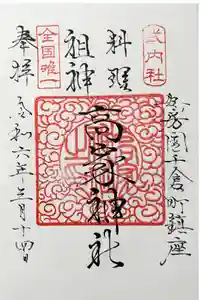 式内社
安房國千倉町鎮座
料理
祖神
高家神社
全国唯一
奉拝
令和六年三月十四日